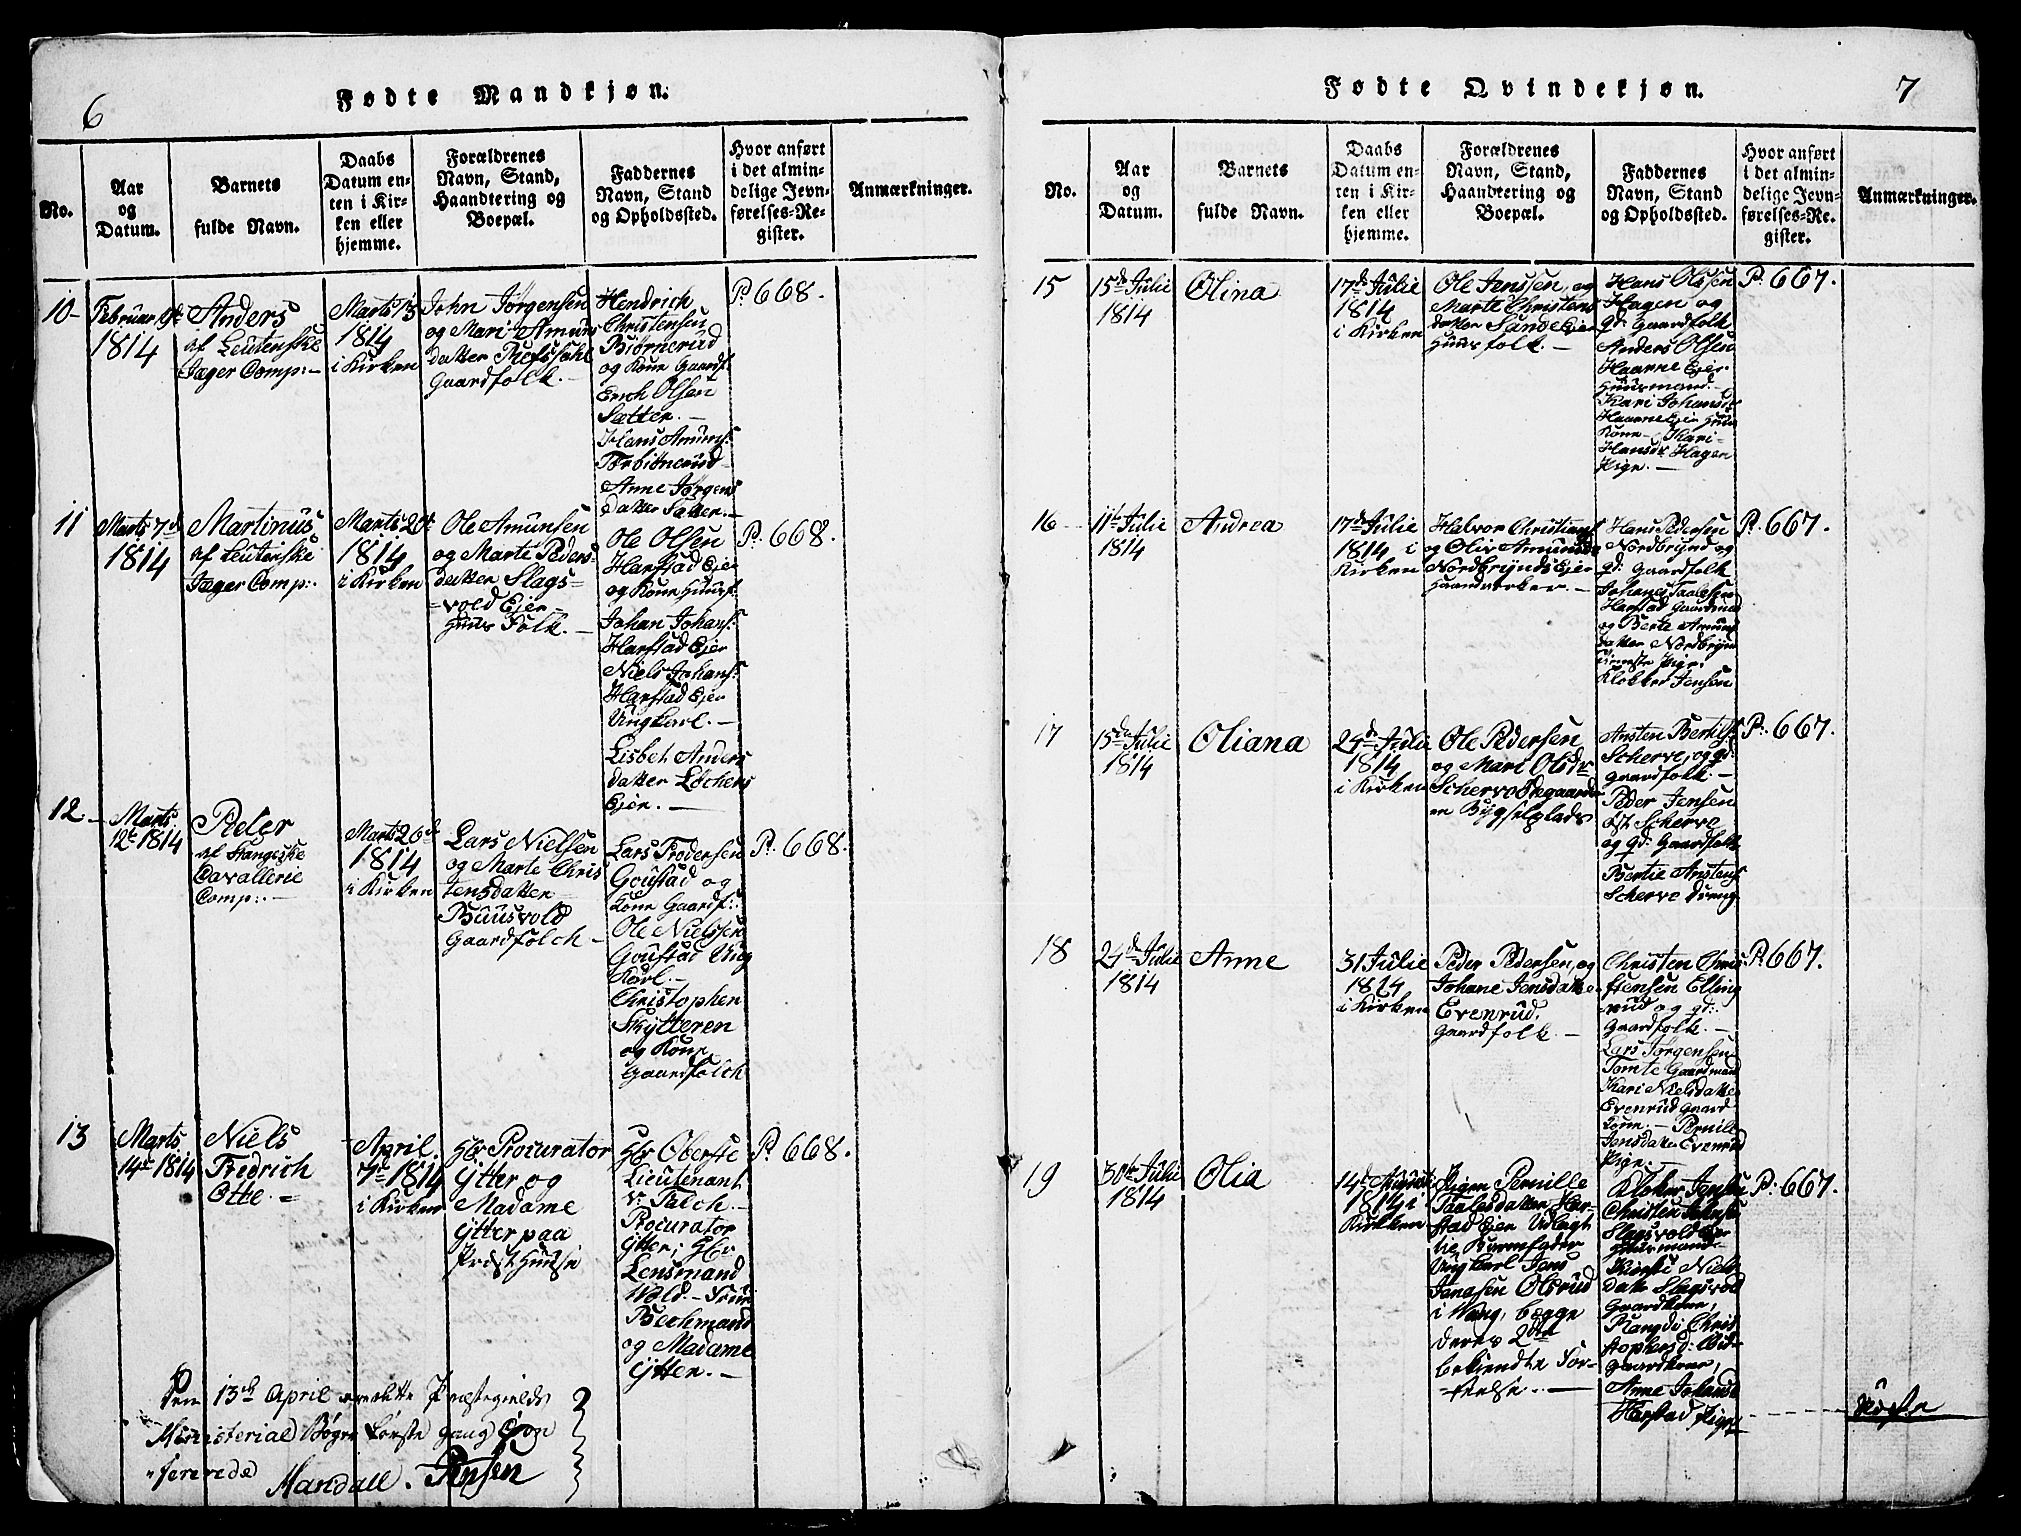 6
Fødte Mandkjøn.
No.
Aar
og
Datum.
Barnets
fulde Navn.
Daabs
Datum en-
ten i Kir-
ken eller
hjemme.
Forældrenes
Navn, Stand,
Haandtering og
Boepæl.
Faddernes
Navn, Stand
og Opholdssted.
Hvor anført
i det almin-
delige Jevn-
førelses-Re-
gister.
Anmærkninger.
10-
Februar
1814
Anders
af Leutenske
Jæger Comp:-
Marts 13
1814
i Kirken
John Jørgensen
og Mari Amuns
datter
Gaardfolk.-
Hendrich
Christensen
Biørnerud
og Kone Gaardf:
Erich Olsen
Sætter.-
Hans Amuns:
Torbiørnerud
Anne Jørgens
datter Sætter.-
P: 668.
11
Marts 7d
1814
Martinus
af Leutenske
Jæger Comp:-
Marts 20de
1814
i Kirken
Ole Amunsen
og Marte Peders-
datter Slags-
=vold Ejer
Huus Folk.-
Ole Olsen
Harstad Ejer
og Kone Huusf:
Johan Johans:
Harstad Ejer
Niels Johans:
Harstad Ejer
Ungkarl.-
Lisbet Anders
datter Løchens
Ejer.-
P: 668.
12.-
Marts
12t 1814
Peder
af Stangeske
Cavallerie
Comp:.-
Marts 26de
1814
i Kirken
Lars Nielsen
og Marte Chris
tensdatter
Buusvold
Gaardfolch-
Lars Frodersen
Goustad og
Kone Gaardf:
Ole Nielssen
Goustad Ung
Karl.-
Christopher
Skytteren
og Kone
Gaardfolch
P: 668.
13
Marts
14t 1814
Niels
Fredrich
Otte.-
April
7de 1814
i Kirken
Hr Procurator
Ytter og
Madame
Ytter paa
Præst Huuse
Hr Oberste
Lieutenant
v Falch.-
Procurator
Ytter; Hr
Lensmand
Wold.- Frue
Bechmand
og Madame
Ytter.-
P: 668.
Den 13de April Præstegields
Ministerial Bøger første gang
Mandall. Jensen
7
Fødte Qvindekjøn.
No.
Aar
og
Datum.
Barnets
fulde Navn.
Daabs
Datum en-
ten i Kir-
ken eller
hjemme.
Forældrenes
Navn, Stand,
Haandtering og
Boepæl.
Faddernes
Navn, Stand
og Opholdssted.
Hvor anført
i det almin-
delige Jevn-
førelses-Re-
gister.
Anmærkninger.
15
15de Julie
1814
Olina
17de Julie
1814
i Kirken
Ole Jenssen, og
Marte Christens
datter Sande Ejer
Huusfolk.-
Hans Olssen
Hagen og
qd: Gaardfolk
Anders Olsen
Haarne Ejer
Huusmand.-
Kari Johansdr
Haarne Ejer Huus
Kone- Kari
Hansdr Hagen
Pige.-
P: 667.
16
11te Julie
1814
Andrea
17de Julie
1814 i
Kirken
Halvor Christians
og Oliv Amunsdr
Nordbrynds Ejer
Haandværker.-
Hans Pedersen
Nordbrynd og
qd: Gaardfolk
Johanes Taalesen
Harstad Gaardmand
og Berte Amuns
datter Nordbrynd
Pige.
Klokker Jensen
P: 667.
17
15de Julie
1814
Oliana
24de Julie
1814
i Kirken
Ole Pedersen
og Mari Olsdr
Scherve Ødegaarden
en Bygselplads
Arsten Bertils:
Scherve, og qd:
Gaardfolk.-
Peder Jensen
Øst Scherve
og qd: Gaardfolk
Bertil Arstens
Scherve dreng
P: 667.
18
24de Julie
1814
Anne
31 Julie
1814
i Kirken
Peder Pedersen, og
Johane Jensdatter
Evenrud,
Gaardfolk.-
Christen Chris
stensen Elling
=rud og qd:
Gaardfolk.-
Lars Jørgensen
Tomte Gaardmand
Kari Nielsdatter
Evenrud Gaard
Kone.- Pernille
Jensdatter Evenrud
Pige.-
P: 667.
19
30te Julie
1814
Olia
14de August
1814 i
Kirken
Pigen Pernille
Taalesdatter Har-
stad Ejer Udlagt
til Barnefader
Ungkarl Jens
Jonasen Olsrud
i Wang, begge
deres 2den
bekiendte For-
=seelse.-
Kloker Jensen
Christen Johnsen
Slagsvold Ejer
Huusmand
Kirsti Niels
datter Slagsvold
Gaardkone,
Rangdi Chris
stophersd:
Gaardkone,
Anne Johansd
Harstad Pige
P: 667.